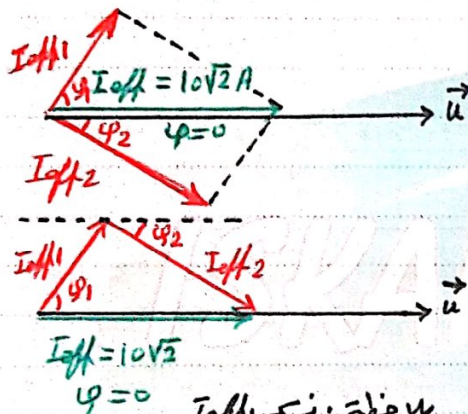 Ieff1
φ1
Ieff = 10√2 A
φ2
φ=0
u⃗
Ieff2
Ieff1
φ2
Ieff2
φ1
u⃗
Ieff = 10√2
φ=0
Ieff1